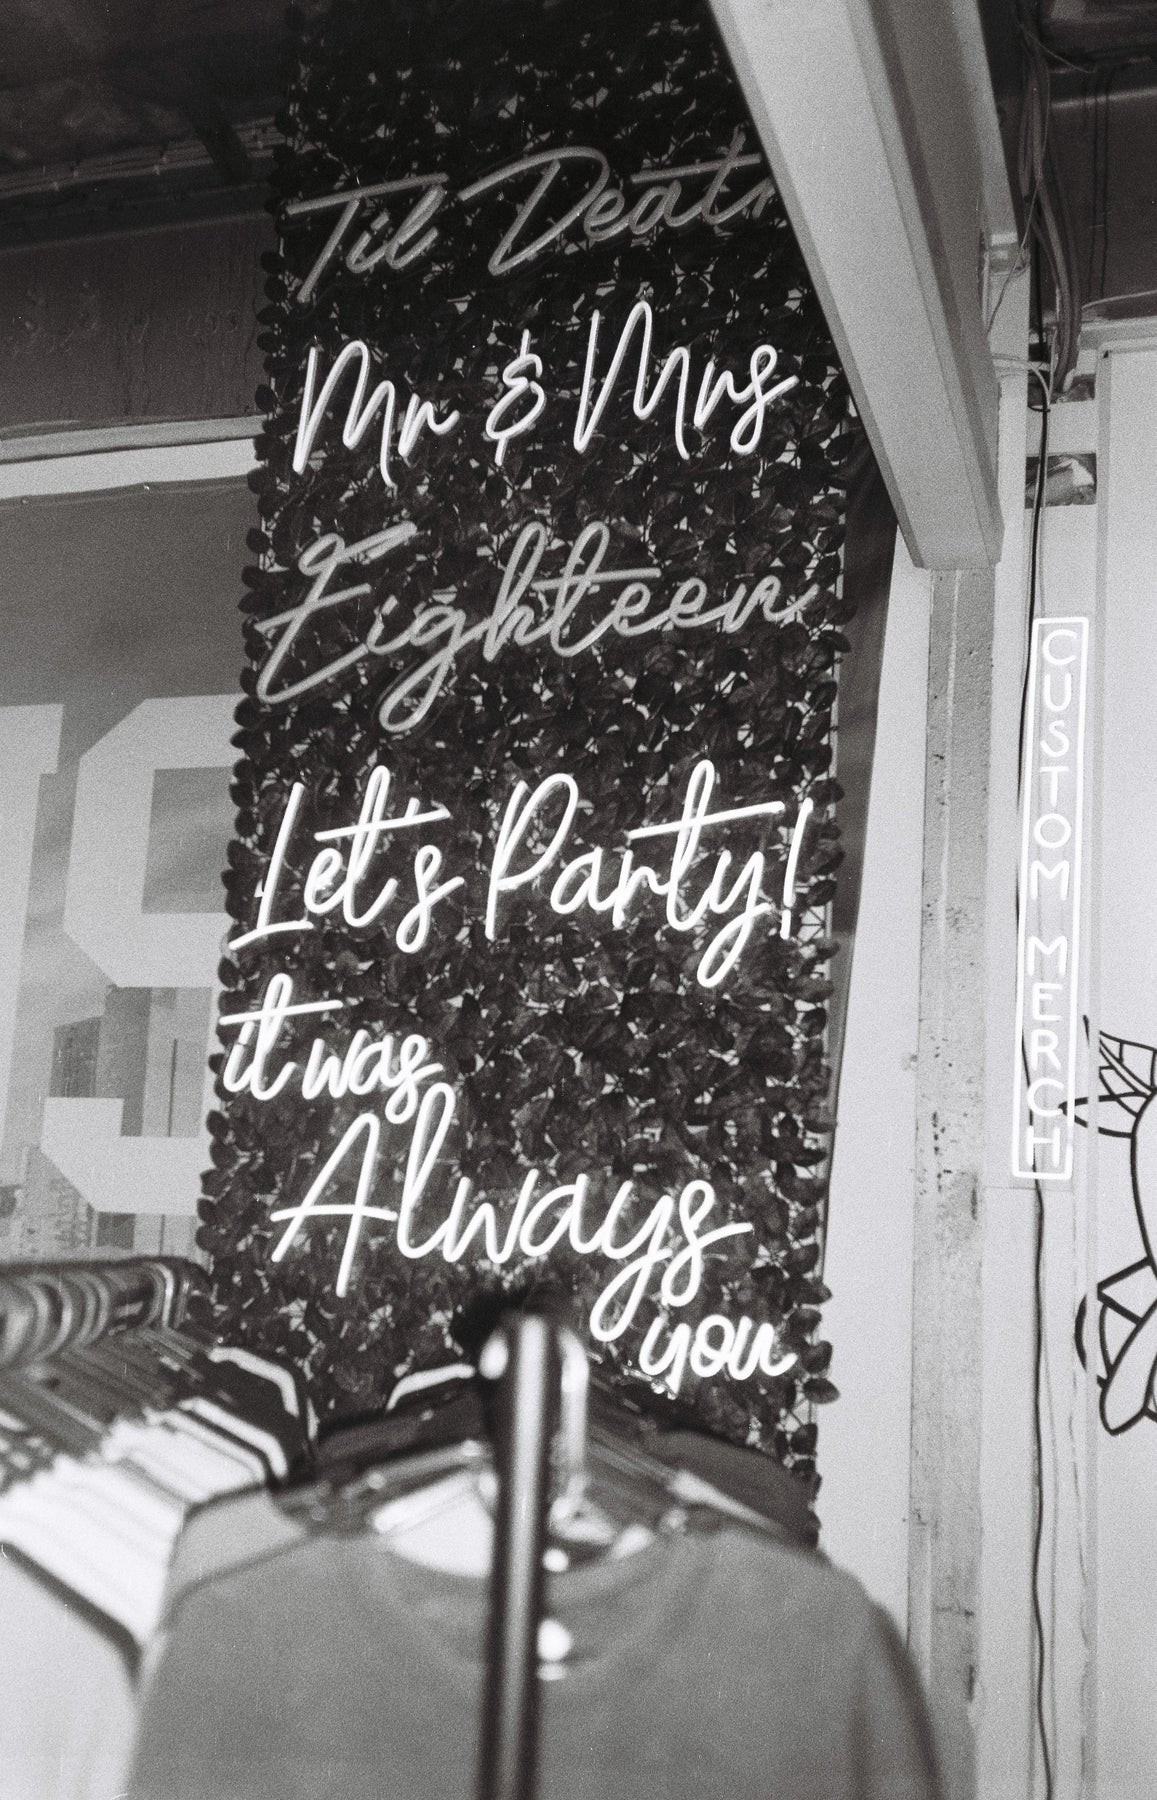 Til Death
Mr & Mrs
Eighteen
Let's Party!
it was
Always
you
CUSTOM MERCH